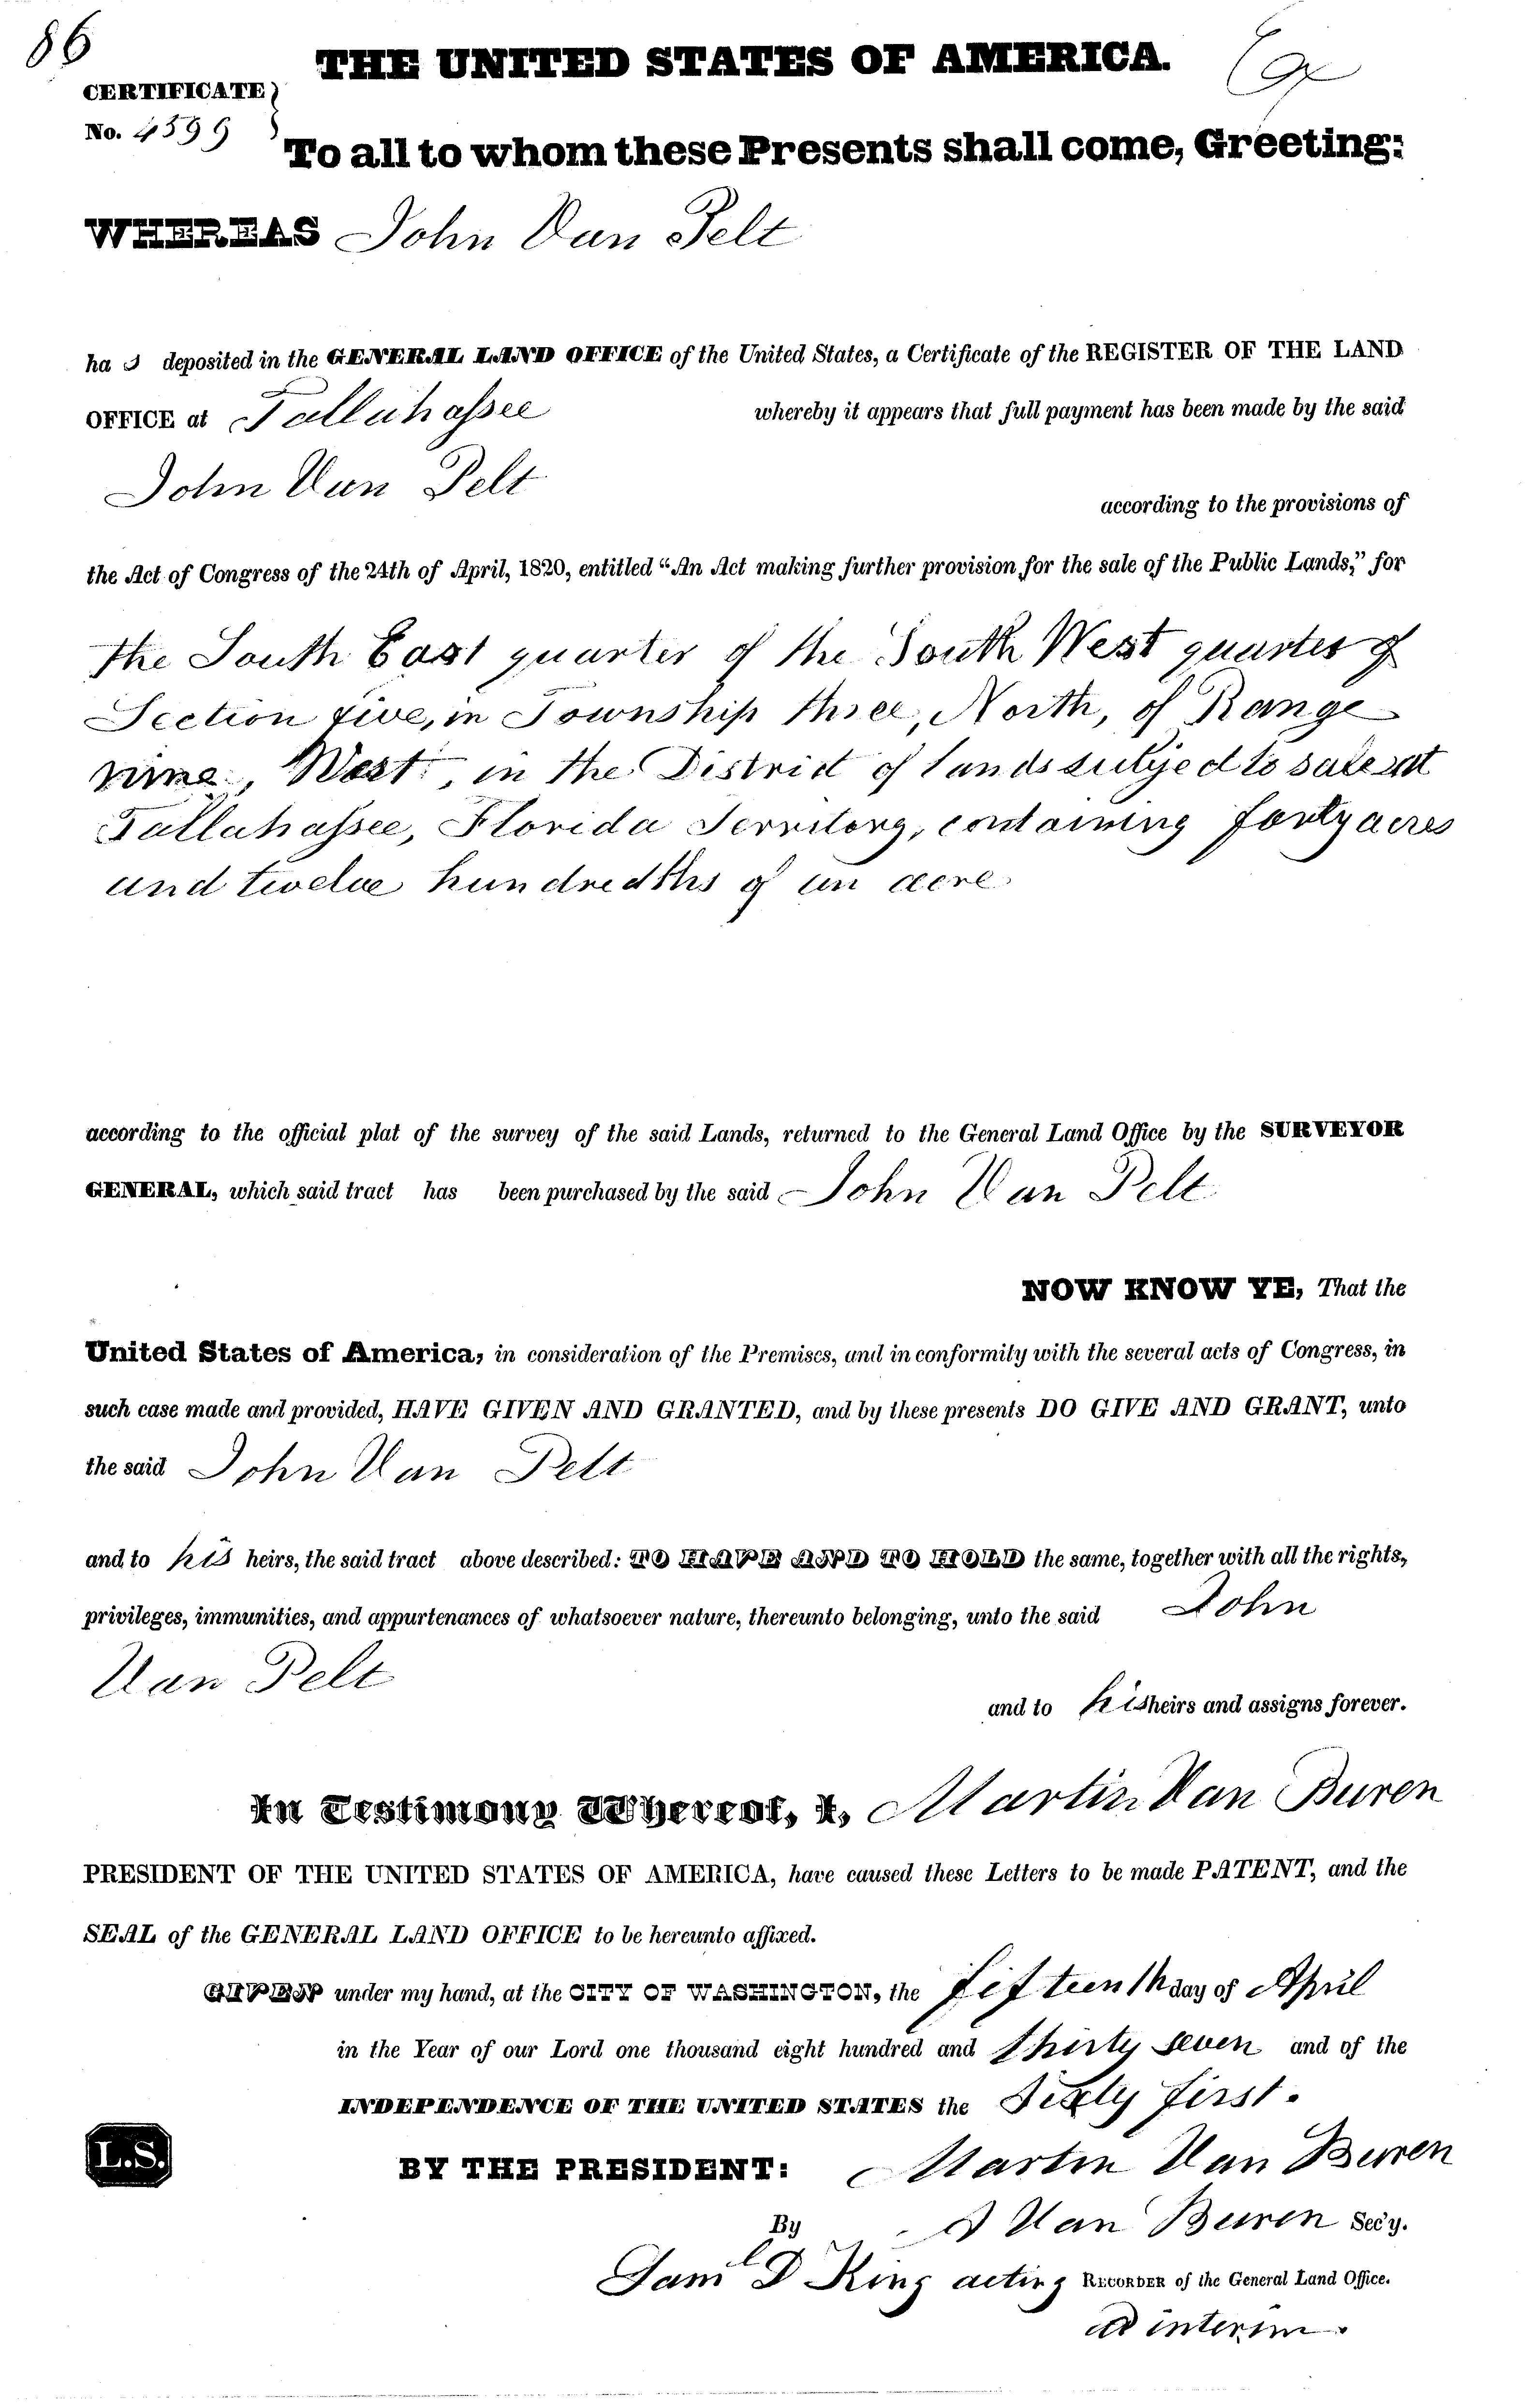 86
THE UNITED STATES OF AMERICA.
CERTIFICATE
No. 4599
To all to whom these Presents shall come, Greeting:
WHEREAS John Van Pelt
ha s deposited in the GENERAL LAND OFFICE of the United States, a Certificate of the REGISTER OF THE LAND
OFFICE at Tallahassee whereby it appears that full payment has been made by the said
John Van Pelt
according to the provisions of
the Act of Congress of the 24th of April, 1820, entitled “An Act making further provision for the sale of the Public Lands,” for
the South East quarter of the South West quarter of
Section five, in Township three, North, of Range
nine, West, in the District of Lands subject to sale at
Tallahassee, Florida Territory, containing forty acres
and twelve hundredths of an acre
according to the official plat of the survey of the said Lands, returned to the General Land Office by the SURVEYOR
GENERAL, which said tract has been purchased by the said John Van Pelt
NOW KNOW YE, That the
United States of America, in consideration of the Premises, and in conformity with the several acts of Congress, in
such case made and provided, HAVE GIVEN AND GRANTED, and by these presents DO GIVE AND GRANT, unto
the said John Van Pelt
and to his heirs, the said tract above described: TO HAVE AND TO HOLD the same, together with all the rights,
privileges, immunities, and appurtenances of whatsoever nature, thereunto belonging, unto the said John
Van Pelt
and to his heirs and assigns forever.
In Testimony Whereof, I, Martin Van Buren
PRESIDENT OF THE UNITED STATES OF AMERICA, have caused these Letters to be made PATENT, and the
SEAL of the GENERAL LAND OFFICE to be hereunto affixed.
GIVEN under my hand, at the CITY OF WASHINGTON, the fifteenth day of April
in the Year of our Lord one thousand eight hundred and thirty seven and of the
INDEPENDENCE OF THE UNITED STATES the Sixty first.
L.S.
BY THE PRESIDENT: Martin Van Buren
By A Van Buren Sec'y.
Saml D King acting RECORDER of the General Land Office.
ad interim.